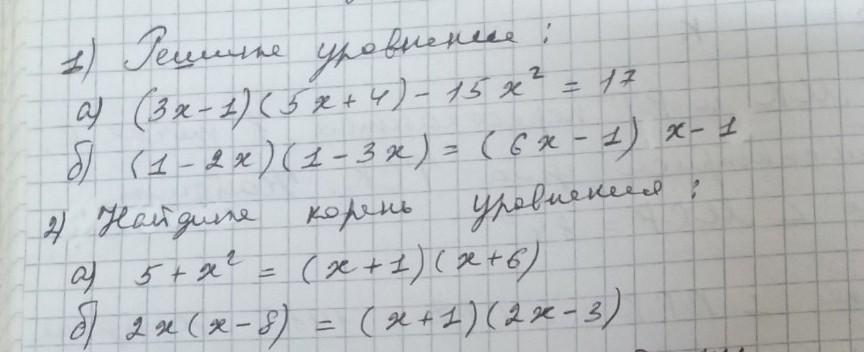 1) Решите уровнение:
а) (3x-1)(5x+4)-15x² = 17
б) (1-2x)(1-3x) = (6x-1) x-1
2) Найдите корень уровнения:
а) 5+x² = (x+1)(x+6)
б) 2x(x-8) = (x+1)(2x-3)